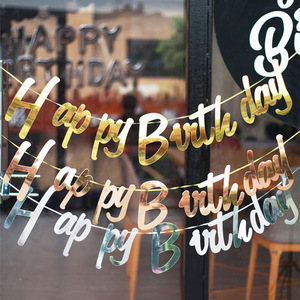 HAPPY
BIRTHDAY
Happy Birthday
Happy Birthday
Happy Birthday